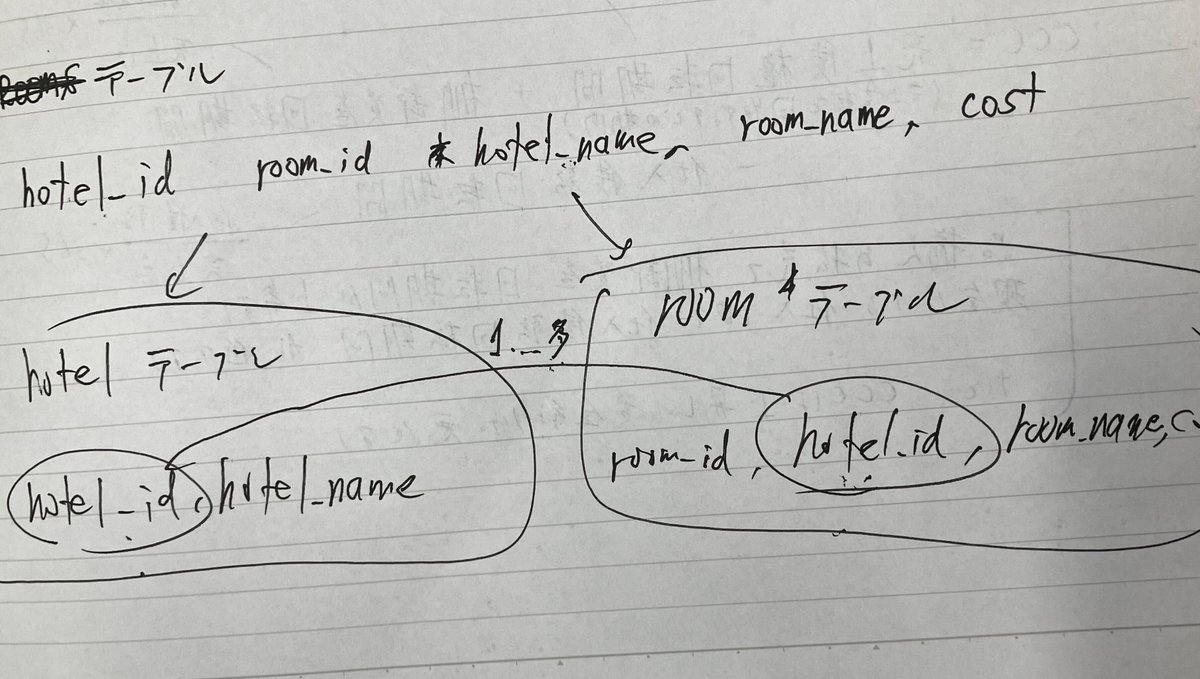 テーブル
hotel_id room_id hotel_name, room_name, cost
hotel テーブル
hotel_id, hotel_name
1...多
room テーブル
room_id, hotel_id, room_name, c